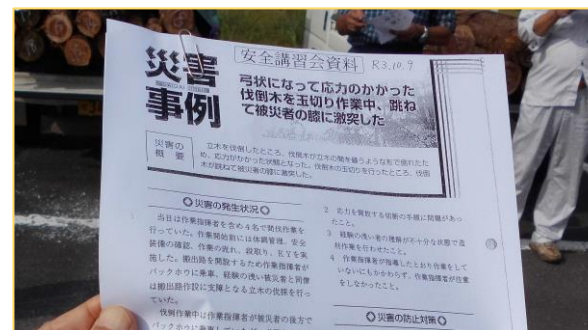 安全講習会資料 R3.10.9
災害
事例
弓状になって応力のかかった
伐倒木を玉切り作業中、跳ね
て被災者の膝に激突した
災害の
概要
立木を伐倒したところ、伐倒木が立木の間を縫うような形で倒れたた
め、応力がかかった状態となった。伐倒木の玉切りを行ったところ、伐倒
木が跳ねて被災者の膝に激突した。
災害の発生状況
当日は作業指揮者を含め4名で間伐作業を
行っていた。作業開始前には体調管理、安全
装備の確認、作業の流れ、段取り、KYを実
施した。搬出路を開設するため作業指揮者が
バックホウに乗車、経験の浅い被災者と同僚
は搬出路作設に支障となる立木の伐採を行っ
ていた。
伐倒作業中は作業指揮者が被災者の後方で
バックホウに乗車していた
2 応力を開放する切断の手順に問題があっ
たこと。
3 経験の浅い者の理解が不十分な状態で造
材作業を行わせたこと。
4 作業指揮者が指導したとおり作業をして
いないにもかかわらず、作業指揮者が注意
をしなかったこと。
災害の防止対策